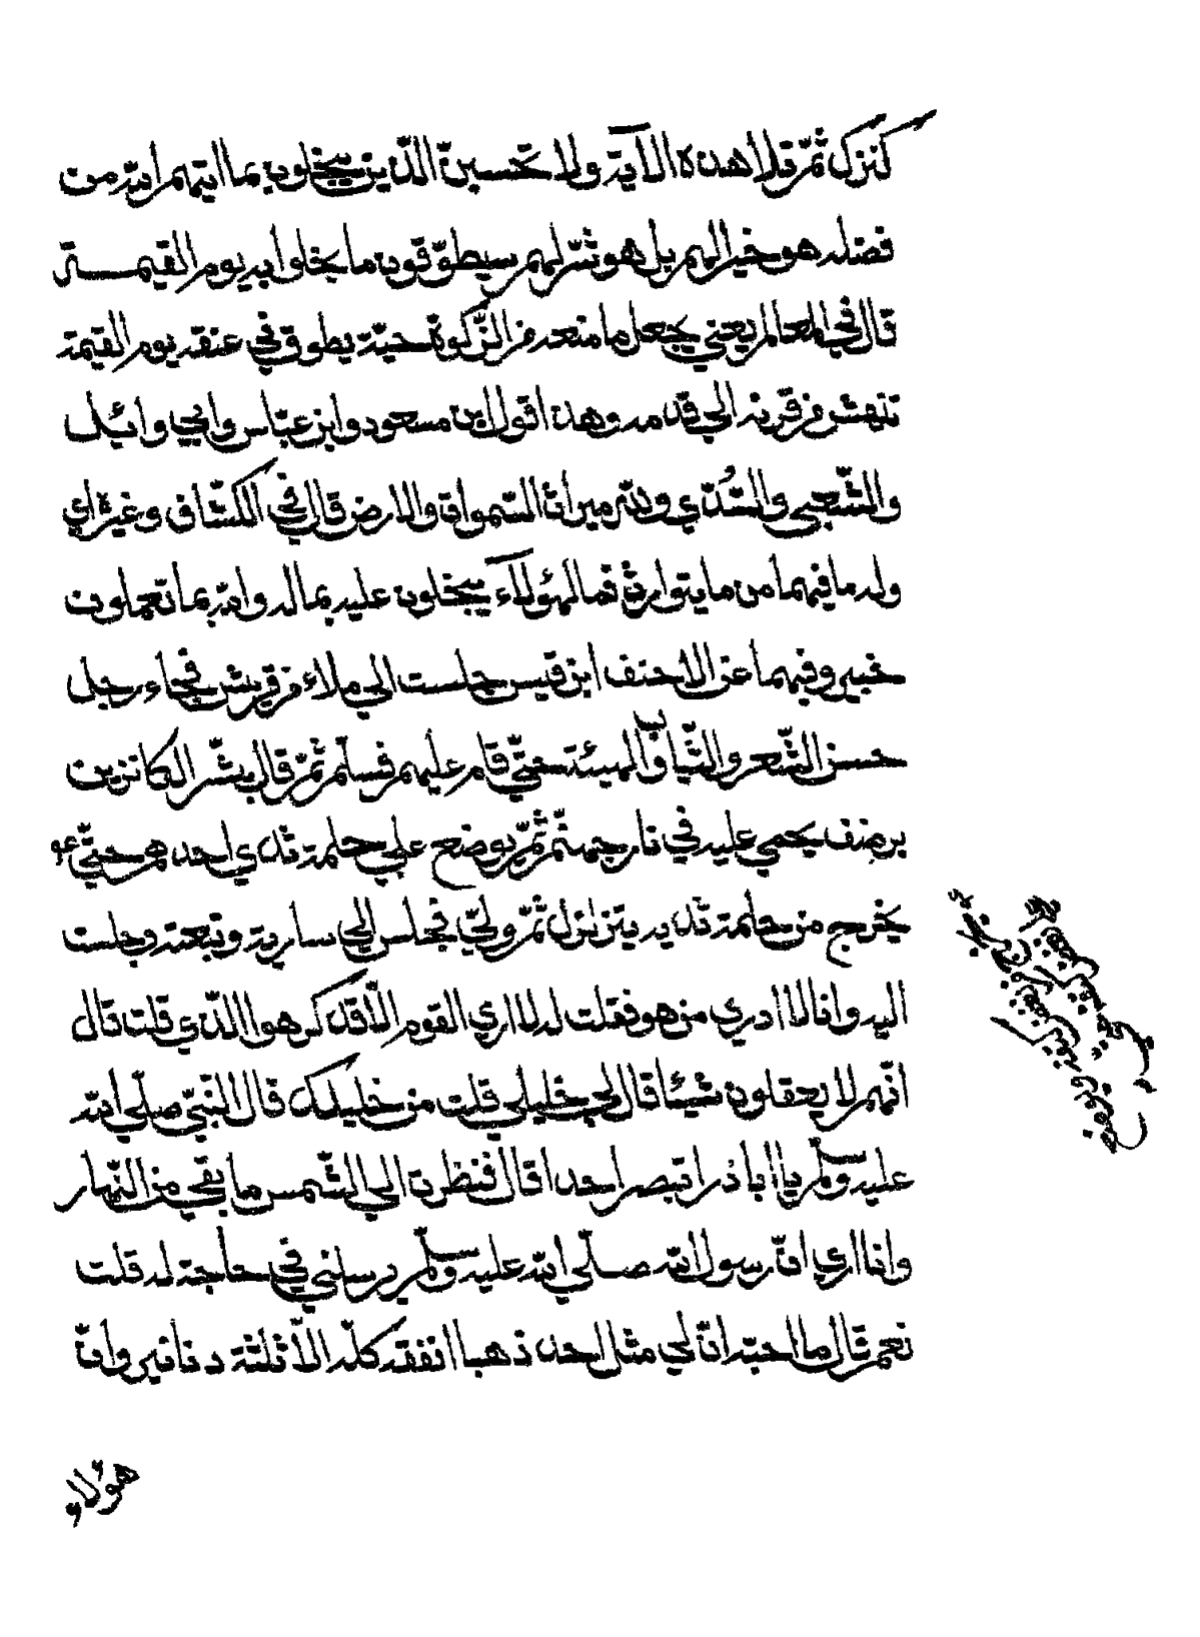 كنزك ثمّ تلا هذه الآية ولا تحسبنّ الّذين يبخلون بما اتيهم الله من
فضله هو خيرا لهم بل هو شرّ لهم سيطوّقون ما بخلوا به يوم القيمة
قال في المعالم يعني يجعل ما منعه من الزّكوة حيّة يطوق في عنقه يوم القيمة
تنهش من قرنه الي قدمه وهذا قول ابن مسعود وابن عبّاس وابي وائل
والشّعبي والسُّدّي ولله ميراث السّموات والارض قال في الكشّاف وغيره اي
وله ما فيهما من ما يتوارث فما لهؤلآء يبخلون عليه بماله والله بما تعملون
خبير وفيهما عن الاحنف ابن قيس جلست الي ملاء من قريش فجاء رجل
حسن الشّعر والثّياب والهيئة حتّي قام عليهم فسلّم ثمّ قال بشّر الكانزين
برضف يحمي عليه في نار جهنّم ثمّ يوضع علي حلمة ثدي احدهم حتّي
يخرج من حلمة ثديه يتزلزل ثمّ ولّي فجلس الي سارية وتبعته وجلست
اليه وانا لا ادري من هو فقلت له لا اري القوم الّا قد كرهوا الّذي قلت قال
انّهم لا يعقلون شيئا قال لي خليلي قلت من خليلك قال النّبيّ صلّي الله
عليه وسلّم يا ابا ذر اتبصر احدا قال فنظرت الي الشّمس ما بقي من النّهار
وانا اري انّ رسول الله صلّي الله عليه وسلّم يرسلني في حاجة له قلت
نعم قال ما احبّ انّ لي مثل احد ذهبا انفقه كلّه الّا ثلثة دنانير وانّ
هؤلاء